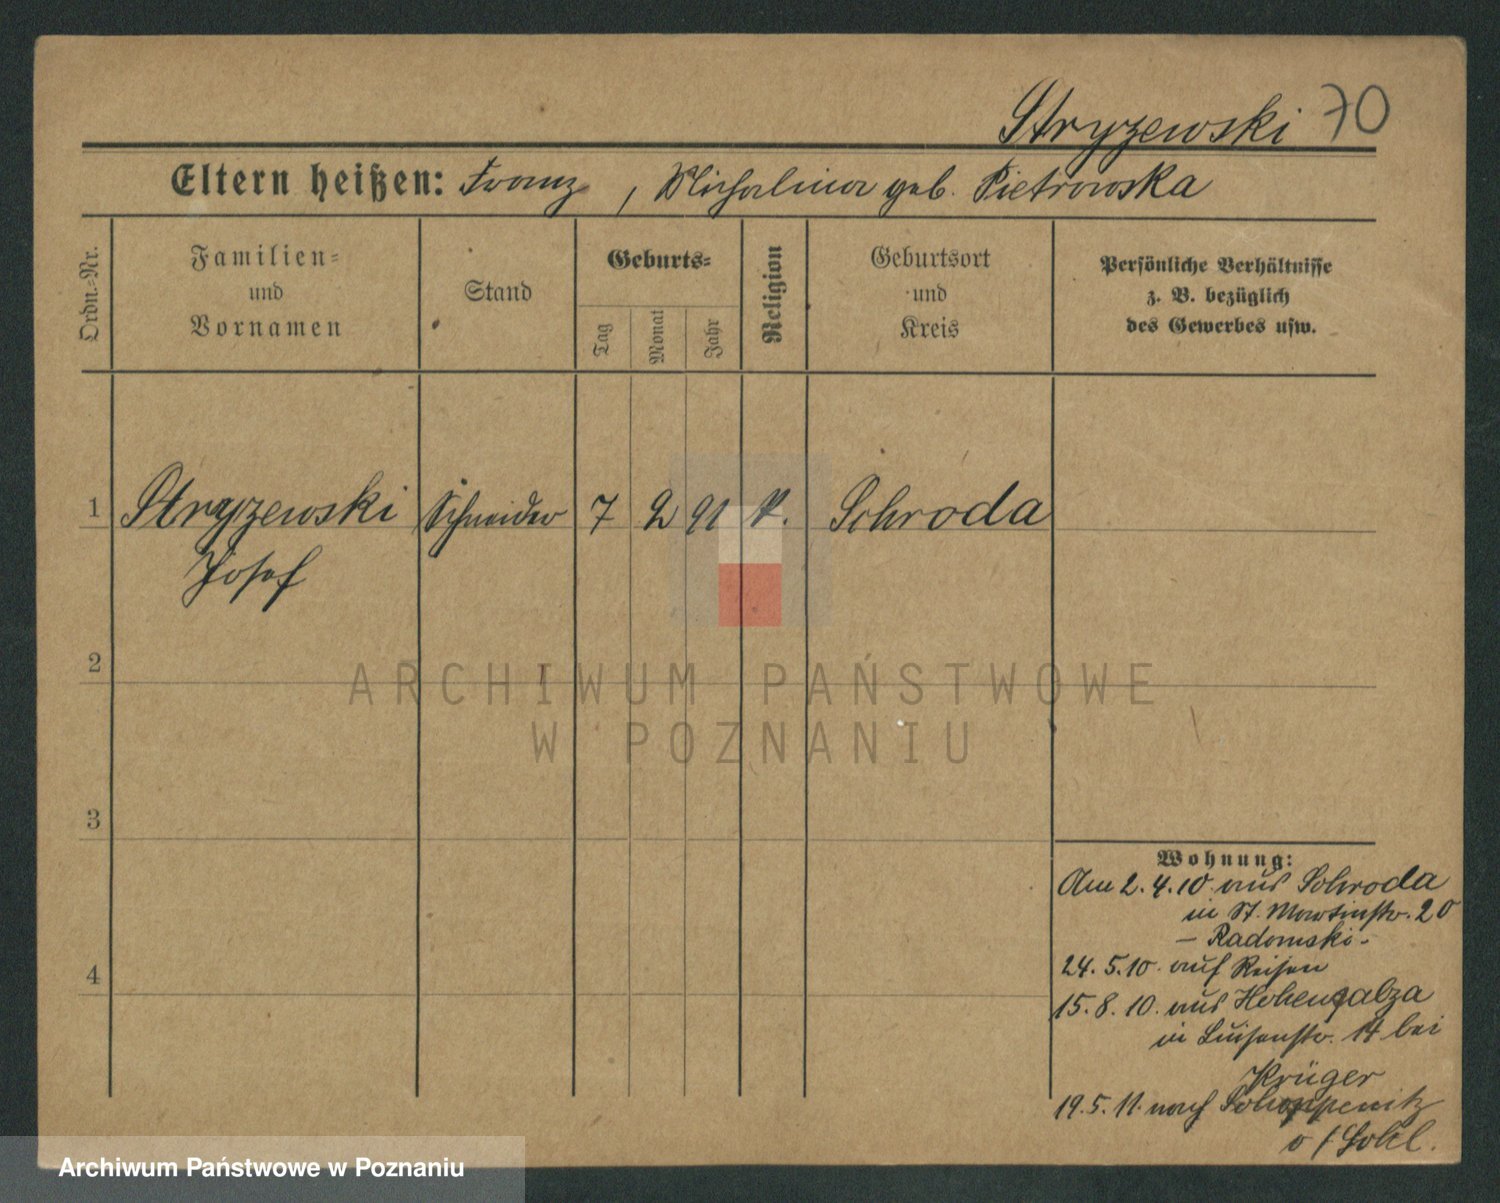 Stryzewski 70
Eltern heißen: Franz, Michalina geb. Pietrowska
Ordn.=Nr.
Familien=
und
Vornamen
Stand
Geburts=
Tag
Monat
Jahr
Religion
Geburtsort
und
Kreis
Persönliche Verhältnisse
z. B. bezüglich
des Gewerbes usw.
1 Stryzewski Schneider 7 2 91 k. Schroda
Josef
2
3
4
Wohnung:
Am 2.4.10 aus Schroda
in St. Martinstr. 20
– Radomski –
24.5.10. auf Reisen
15.8.10. aus Hohensalza
in Luisenstr. 14 bei
Krüger
19.5.11. nach Schoppenitz
o/Schl.
ARCHIWUM PAŃSTWOWE
W POZNANIU
Archiwum Państwowe w Poznaniu